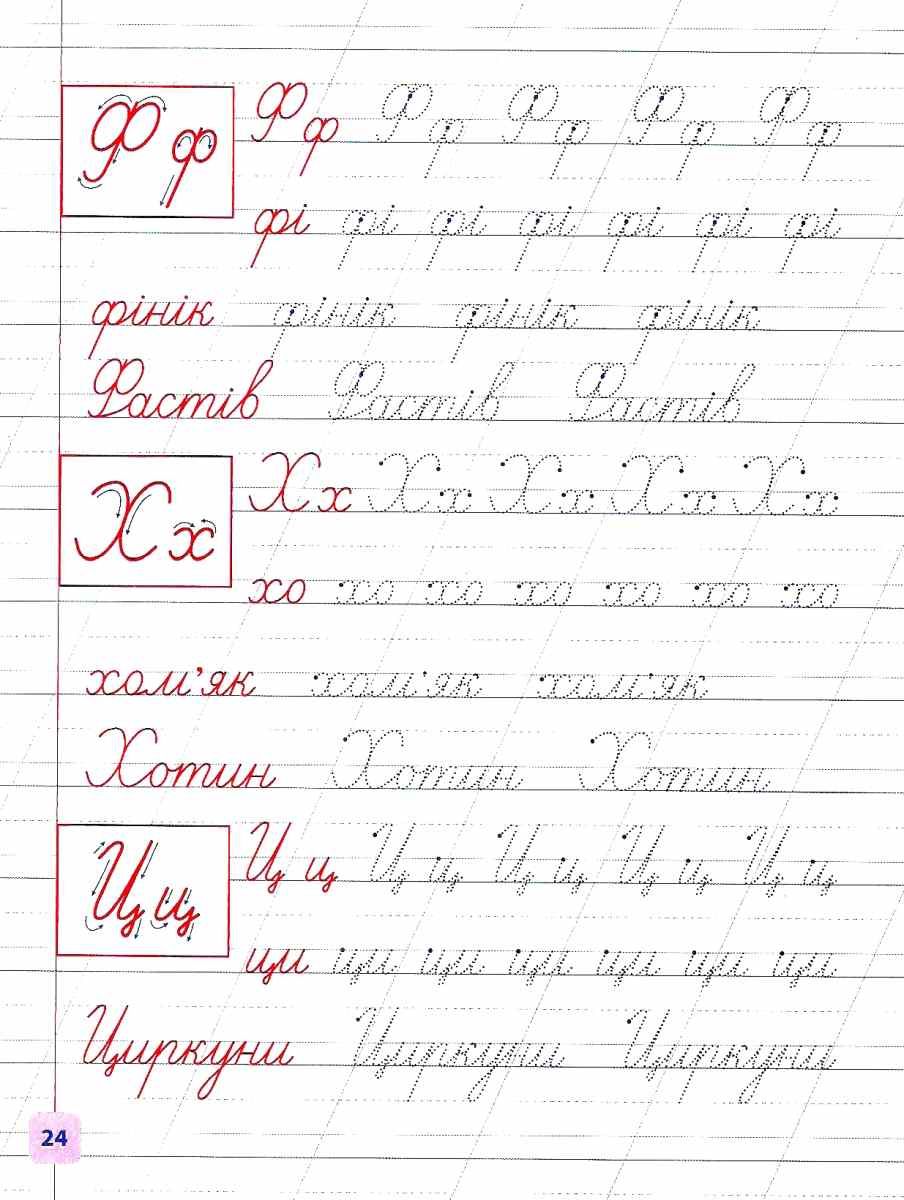 Ф ф Ф ф Ф ф Ф ф Ф ф Ф ф
фі фі фі фі фі фі фі
фінік фінік фінік фінік
Фастів Фастів Фастів
Х х Х х Х х Х х Х х Х х
хо хо хо хо хо хо хо
хом’як хом’як хом’як
Хотин Хотин Хотин
Ц ц Ц ц Ц ц Ц ц Ц ц Ц ц
ци ци ци ци ци ци ци
Циркуни Циркуни Циркуни
24